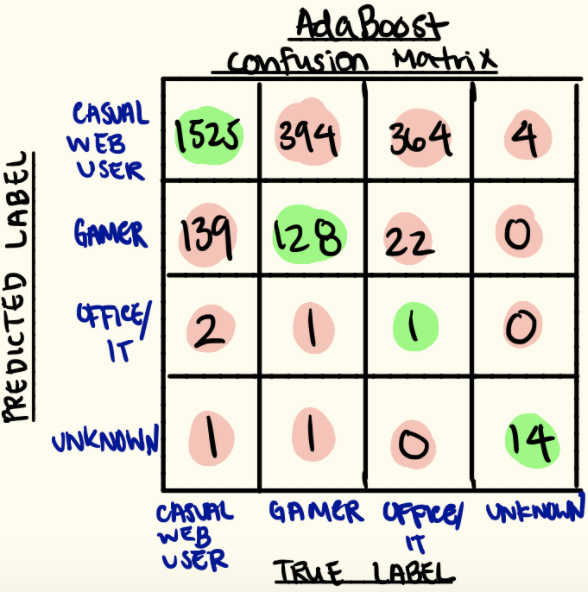 AdaBoost
Confusion Matrix
PREDICTED LABEL
CASUAL
WEB
USER
1525 394 364 4
GAMER 139 128 22 0
OFFICE/
IT
2 1 1 0
UNKNOWN 1 1 0 14
CASUAL GAMER OFFICE/ UNKNOWN
WEB IT
USER
TRUE LABEL